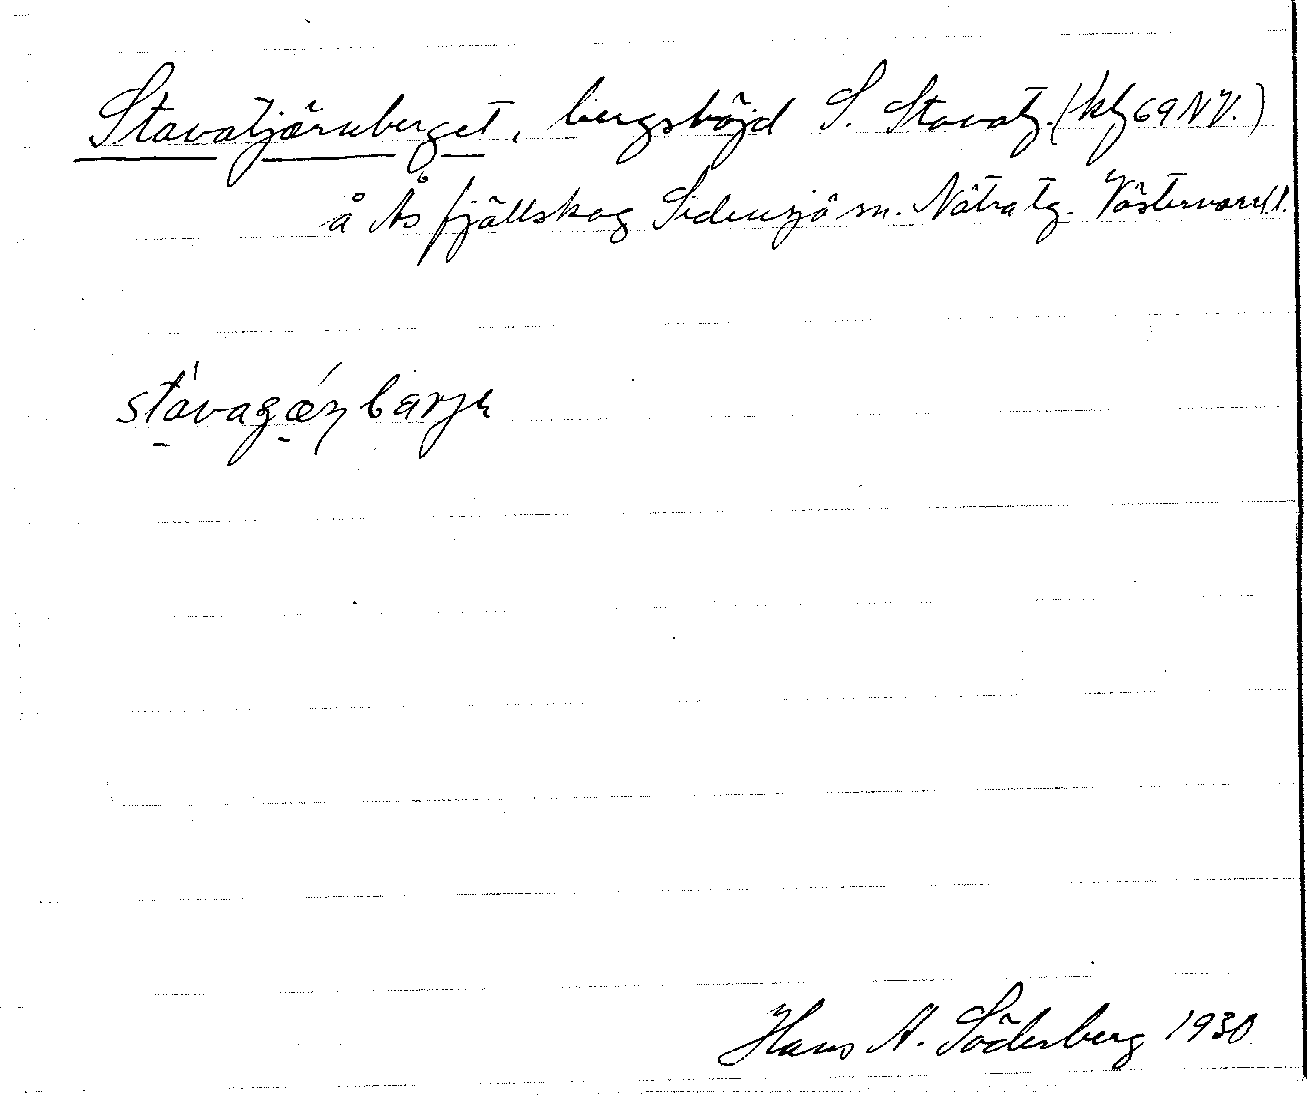 Stavatjärnberget, bergshöjd S. Stavatj. (kbl 69 NV.)
å Ås fjällskog Sidensjö sn. Nätra tg. Västernorrl l.
stávagǽɳbærjɛ
Hans A. Söderberg 1930